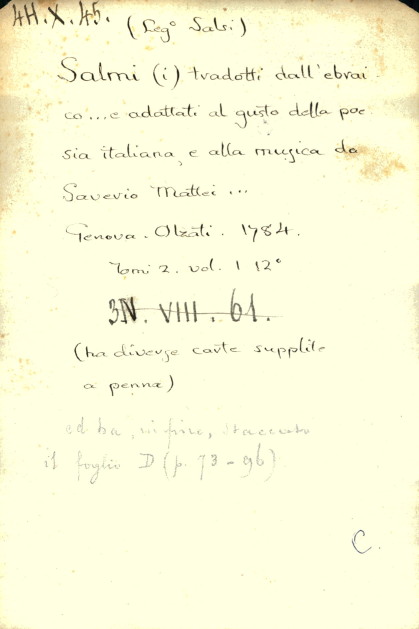 4H.X.45. (Leg° Salsi)
Salmi (i) tradotti dall'ebrai-
co... e adattati al gusto della poe
sia italiana, e alla musica da
Saverio Mattei ...
Genova. Olzati. 1784.
Tomi 2. vol. 1 12°
3N. VIII. 61.
(ha diverse carte supplite
a penna)
ed ha, in fine, staccato
il foglio D (p. 73-96)
C.